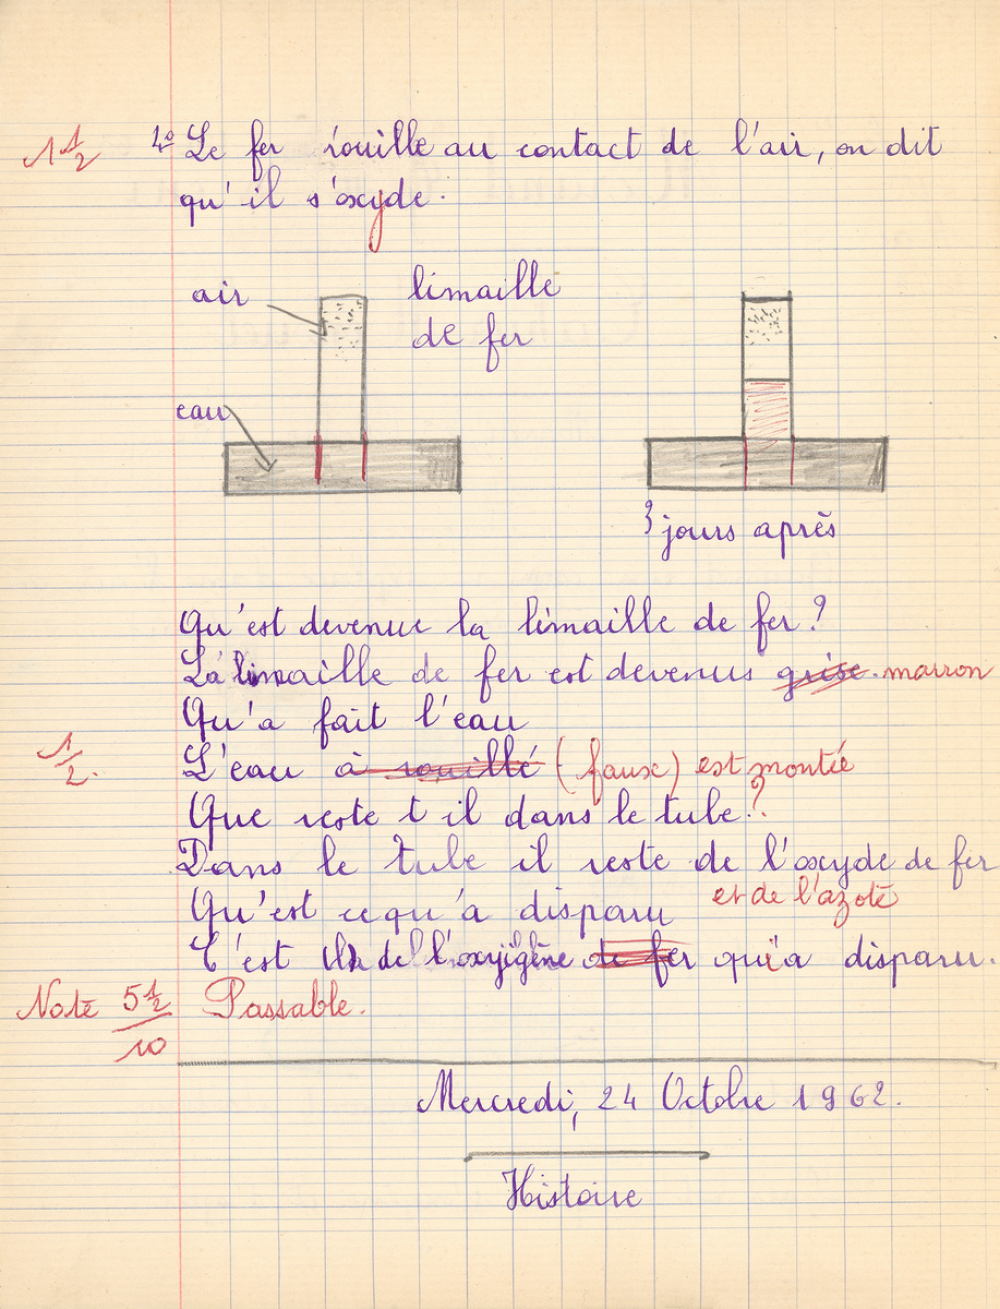 1 1/2 4° Le fer rouille au contact de l'air, on dit
qu'il s'oxyde.
air
limaille
de fer
eau
3 jours après
Qu'est devenue la limaille de fer ?
La limaille de fer est devenus grise. marron
Qu'a fait l'eau
1/2. L'eau à rouillé (faux) est montée
Que reste t il dans le tube ?
Dans le tube il reste de l'oxyde de fer
et de l'azote
Qu'est ce qu'a disparu
C'est de l'oxyigène de fer qui a disparu.
Note 5 1/2 / 10 Passable.
Mercredi, 24 Octobre 1962.
Histoire